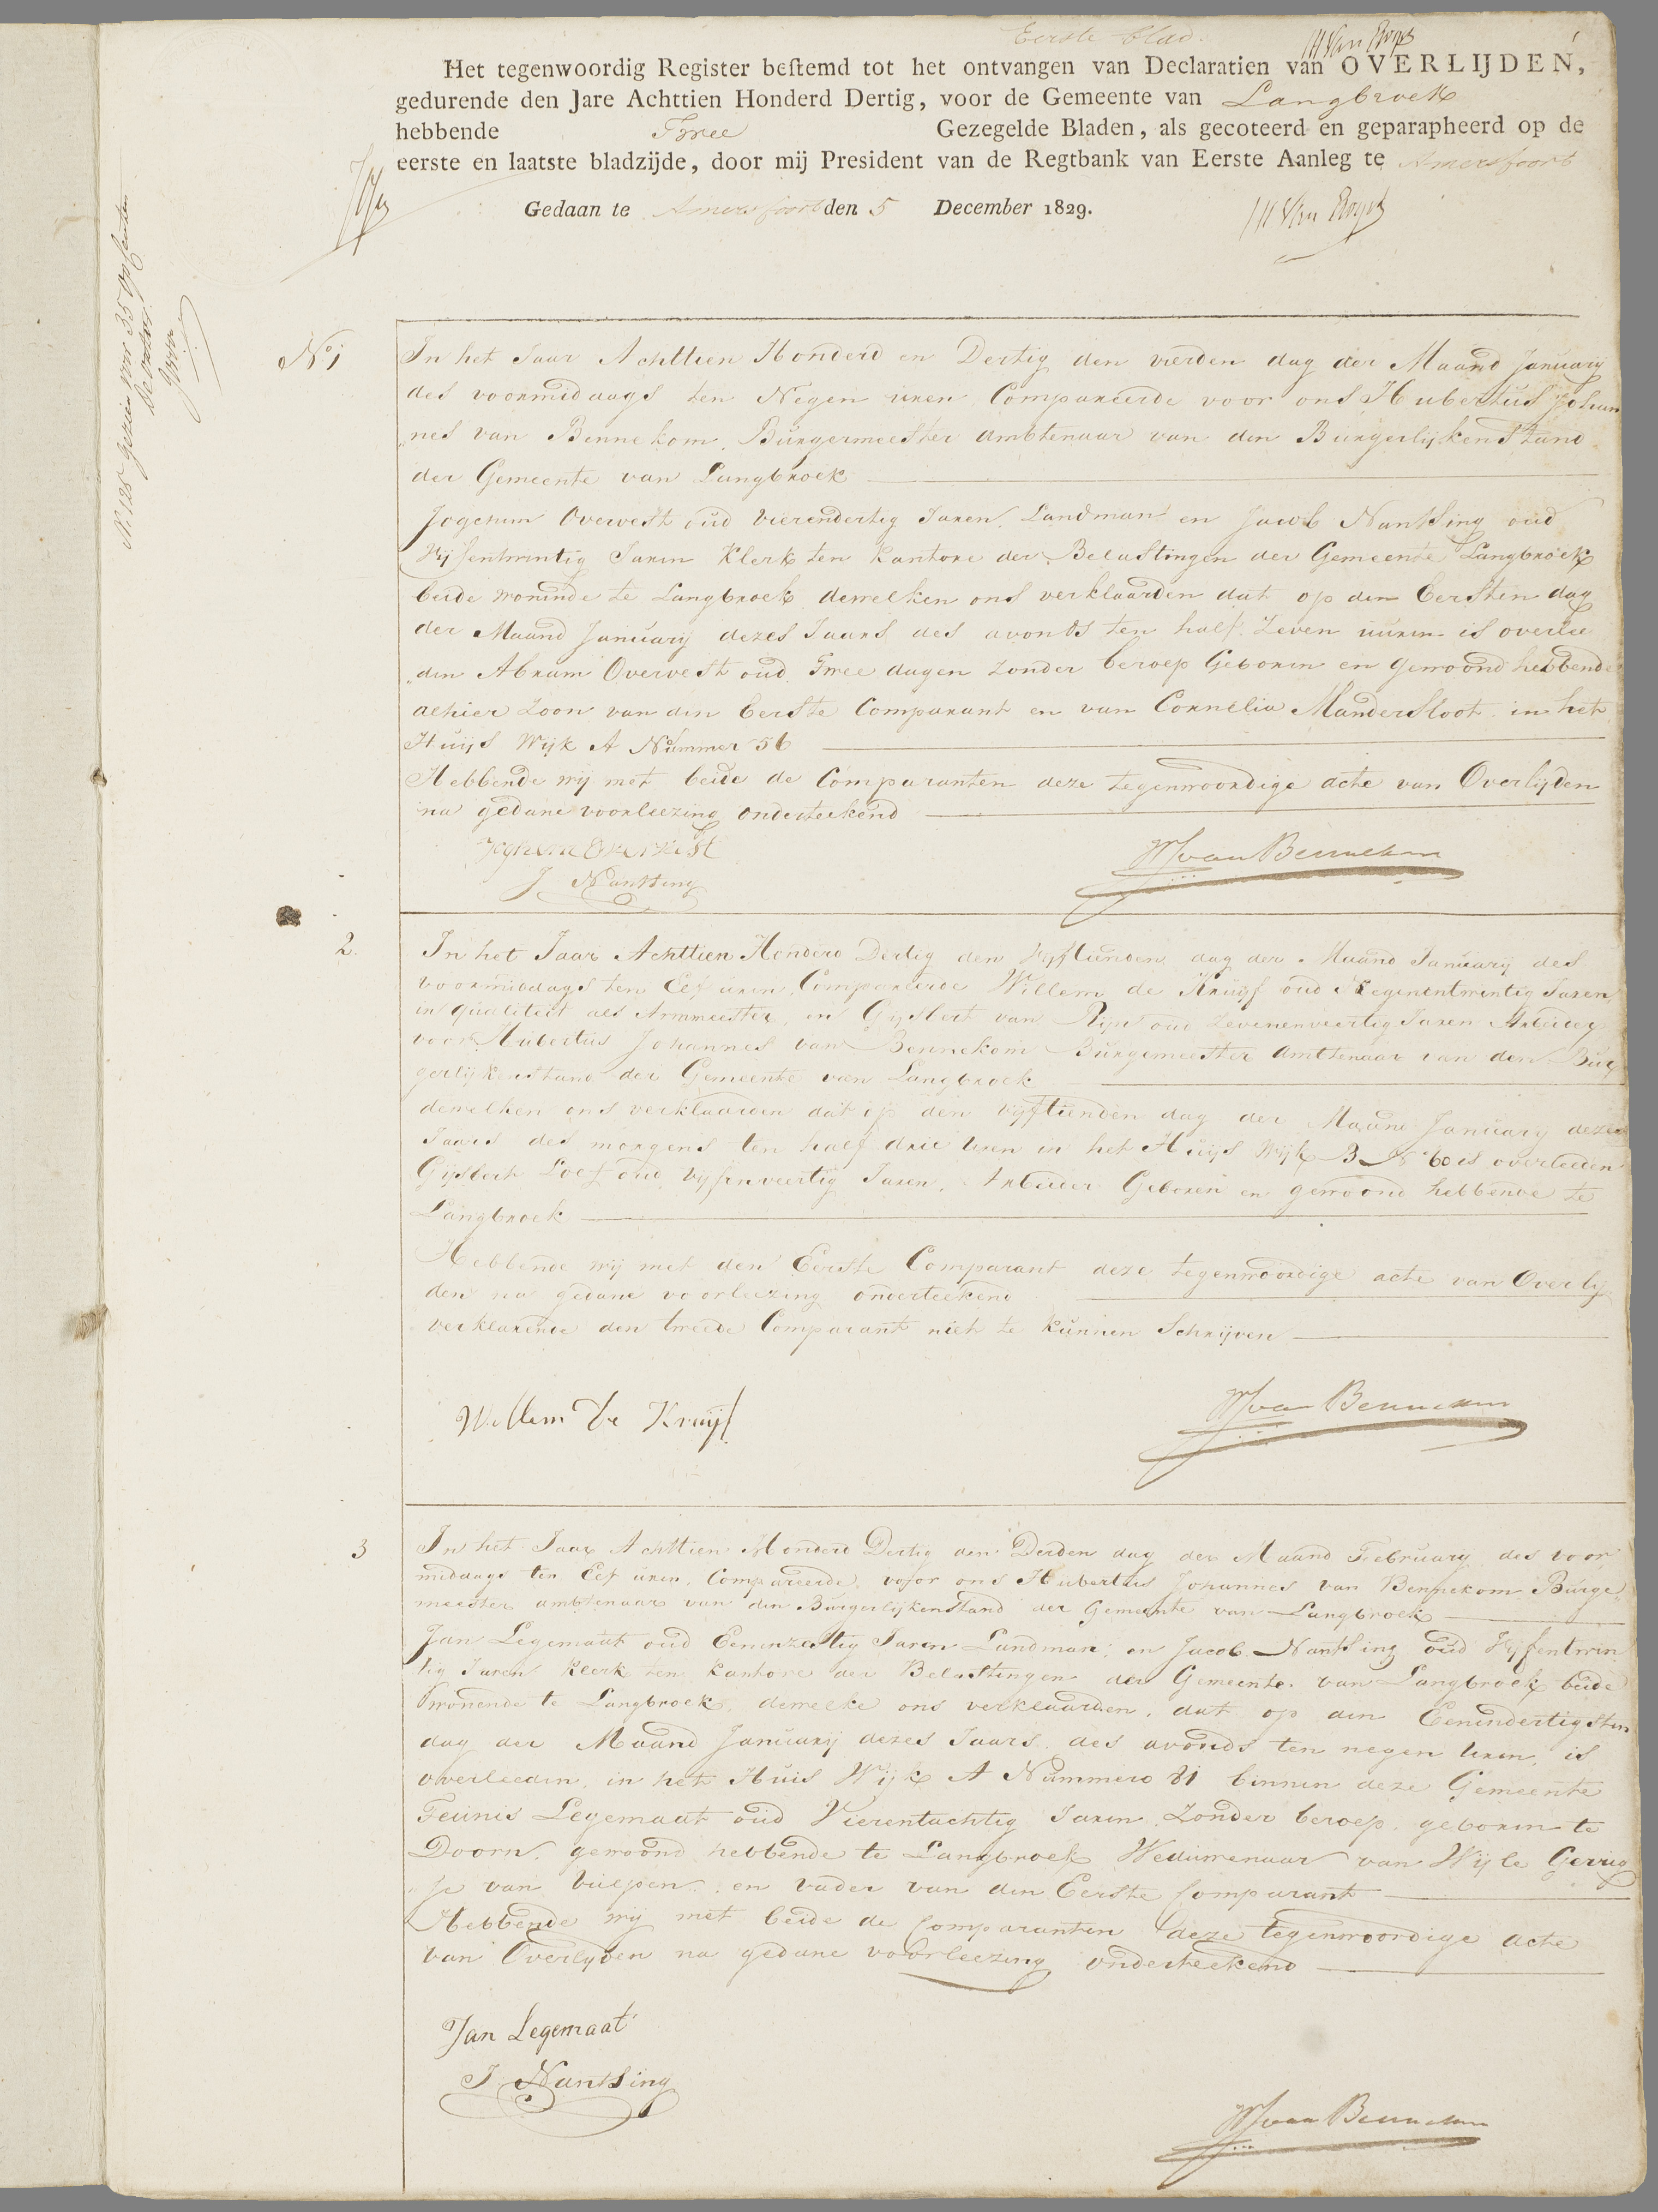 Eerste blad.
Het tegenwoordig Register bestemd tot het ontvangen van Declaratien van OVERLIJDEN,
gedurende den Jare Achttien Honderd Dertig, voor de Gemeente van Langbroek
hebbende Twee Gezegelde Bladen, als gecoteerd en geparapheerd op de
eerste en laatste bladzijde, door mij President van de Regtbank van Eerste Aanleg te Amersfoort
Gedaan te Amersfoort den 5 December 1829.
No 1
In het Jaar Achttien Honderd en Dertig den vierden dag der Maand January
des voormiddags ten Negen uren Compareerde voor ons Hubertus Johan
„nes van Bennekom, Burgermeester ambtenaar van den Burgerlijken Stand
der Gemeente van Langbroek
Jogchum Overvest oud vierendertig Jaren, Landman en Jacob Nantsing oud
Vijfentwintig Jaren Klerk ten Kantore der Belastingen der Gemeente Langbroek
beide woninde te Langbroek dewelken ons verklaarden dat op den Eersten dag
der Maand January dezes Jaars des avonds ten half Zeven uuren is overlee
„den Abram Overvest oud Twee dagen Zonder beroep Geboren en Gewoond hebbende
alhier Zoon van den Eerste Comparant en van Cornelia Mandersloot in het
Huijs Wijk A Nummer 56
Hebbende wij met beide de Comparanten deze tegenwoordige acte van Overlijden
na gedane voorleezing onderteekend
Jogchem Overvest
J Nantsing
HJ van Bennekom
2.
In het Jaar Achttien Honderd Dertig den Vyftienden dag der Maand January des
voormiddags ten Elf uren, Compareerde Willem de Kruijf oud Negenentwintig Jaren
in qualiteit als Armmeester, en Gijsbert van Rijn oud Zevenenveertig Jaren Arbeider
voor Hubertus Johannes van Bennekom Burgemeester Ambtenaar van den Bur
gerlijkenstand der Gemeente van Langbroek
dewelken ons verklaarden dat op den vyftienden dag der Maand January dezes
Jaars des morgens ten half drie uren in het Huijs Wijk B No 60 is overleeden
Gijsbert Loef oud Vyfenveertig Jaren, Arbeider Geboren en gewoond hebbende te
Langbroek
Hebbende wij met den Eerste Comparant deze tegenwoordige acte van Overlij
den na gedane voorleezing onderteekend
verklarende den tweede Comparant niet te kunnen Schrijven
Willem de Kruijf
HJ van Bennekom
3
In het Jaar Achttien Honderd Dertig den Derden dag der Maand February des voor
middags ten Elf uren, Compareerde voor ons Hubertus Johannes van Bennekom Burge„
meester ambtenaar van den Burgerlijkenstand der Gemeente van Langbroek
Jan Legemaat oud Eenenzestig Jaren Landman, en Jacob Nantsing oud Vyfentwin
tig Jaren Klerk ten Kantore der Belastingen der Gemeente van Langbroek beide
woonende te Langbroek, dewelke ons verklaarden, dat op den Eenendertigsten
dag der Maand January dezes Jaars des avonds ten negen uren, is
overleeden, in het Huis Wijk A Nummero 81 binnen deze Gemeente
Teunis Legemaat oud Vierentachtig Jaren Zonder beroep, geboren te
Doorn, gewoond hebbende te Langbroek Weduwenaar van Wijle Gerrig
je van Vulpen, en Vader van den Eerste Comparant
Hebbende wij met beide de Comparanten deze tegenwoordige acte
van Overlyden na gedane voorleezing onderteekend
Jan Legemaat
J. Nantsing
HJ van Bennekom